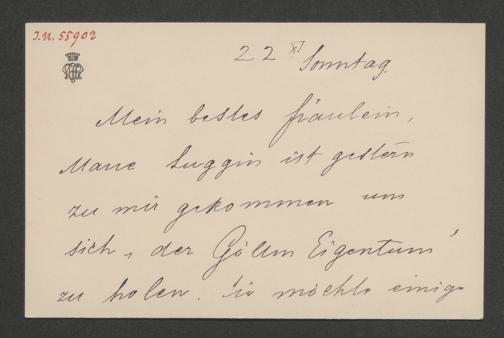 I.N. 55902
22 XI Sonntag.
Mein bestes Fräulein,
Marie Luggin ist gestern
zu mir gekommen um
sich, der Eigentum
zu holen. Sie möchte einige